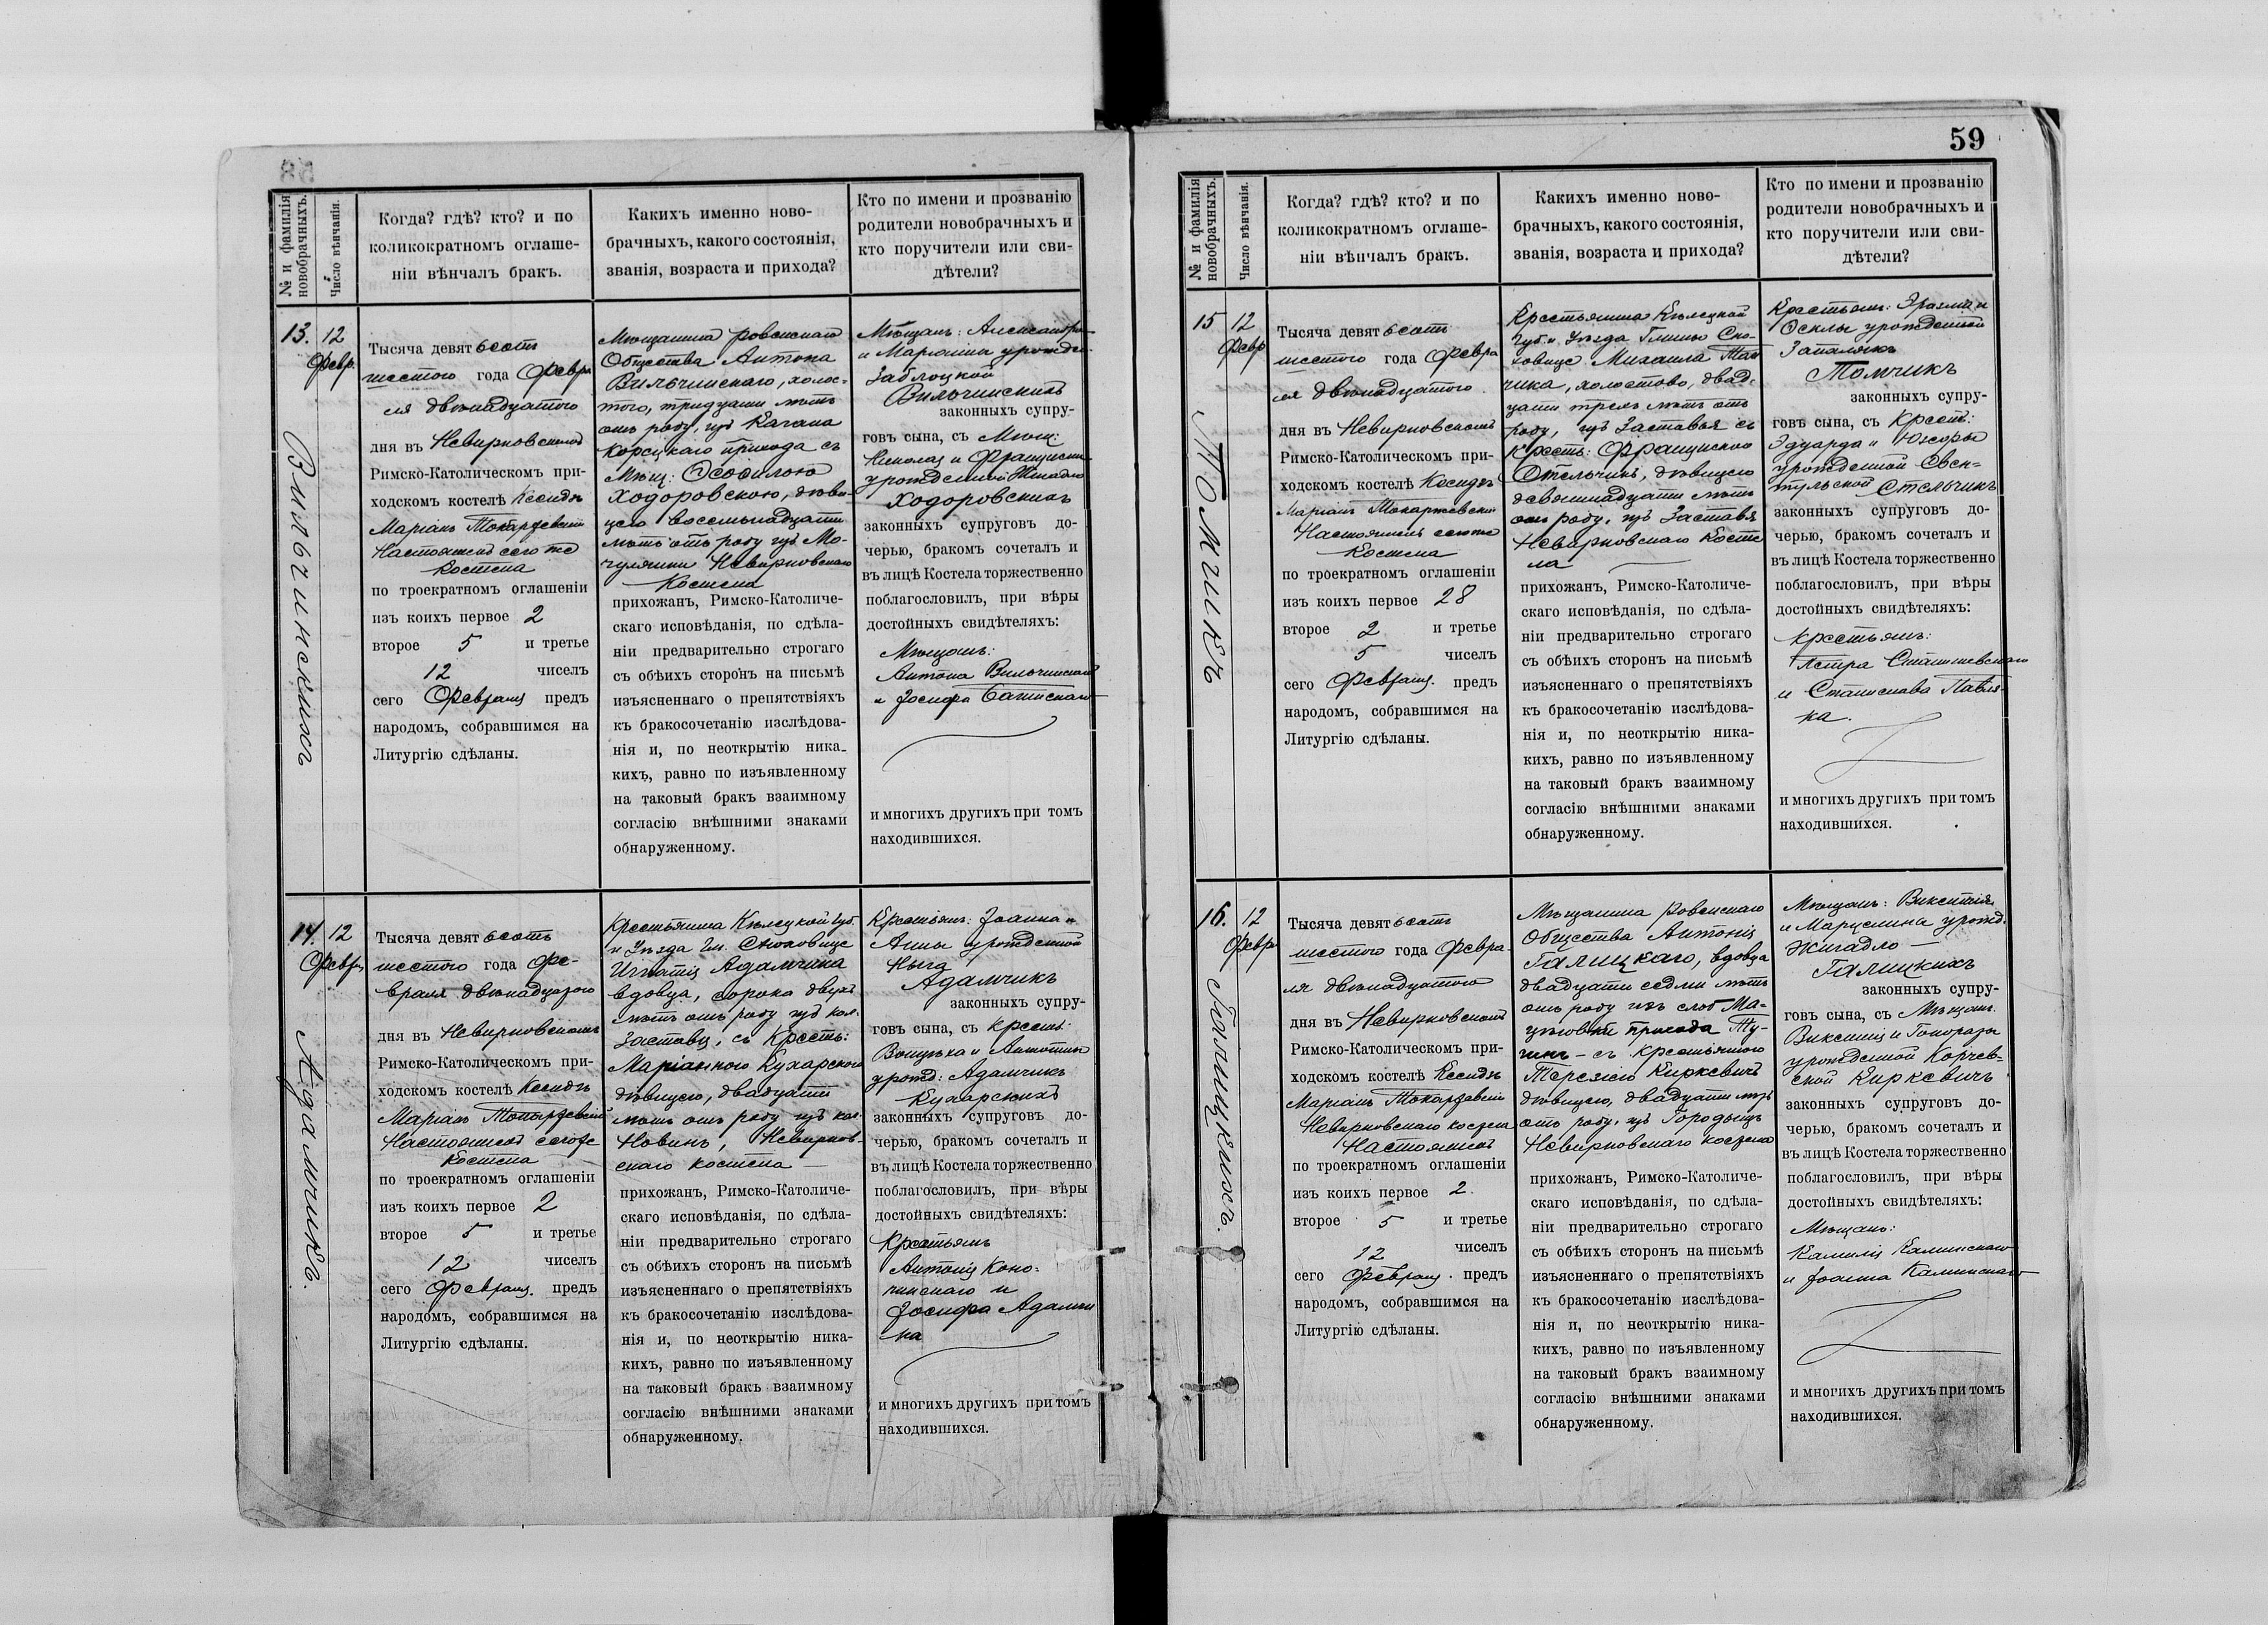 59
№ и фамилія новобрачныхъ.
Число вѣнчанія.
Когда? гдѣ? кто? и по
коликократномъ оглаше-
ніи вѣнчалъ бракъ.
Какихъ именно ново-
брачныхъ, какого состоянія,
званія, возраста и прихода?
Кто по имени и прозванію
родители новобрачныхъ и
кто поручители или сви-
дѣтели?
13.
Вильчинскихъ
12
Февр.
Тысяча девятьсотъ
шестого года Февра
ля двѣнадцатого
дня въ Невирковскомъ
Римско-Католическомъ при-
ходскомъ костелѣ Ксендзъ
Маріанъ Токаржевскій
Настоятель сего же
Костела
по троекратномъ оглашеніи
изъ коихъ первое 2
второе 5 и третье
12 чиселъ
сего Февраля предъ
народомъ, собравшимся на
Литургію сдѣланы.
Мѣщанина Ровенскаго
Общества Антона
Вильчинскаго, холос-
того, тридцати лѣтъ
отъ роду, изъ
Корецкаго прихода съ
Мѣщ: Ѳеофилою
Ходоровскою, дѣви-
цею восемьнадцати
лѣтъ отъ роду изъ Мо-
чулянки Невирковскаго
Костела
прихожанъ, Римско-Католиче-
скаго исповѣданія, по сдѣла-
ніи предварительно строгаго
съ обѣихъ сторонъ на письмѣ
изъясненнаго о препятствіяхъ
къ бракосочетанію изслѣдова-
нія и, по неоткрытію ника-
кихъ, равно по изъявленному
на таковый бракъ взаимному
согласію внѣшними знаками
обнаруженному.
Мѣщанъ: Александра
и Маріанны урожден.
Заблоцкой
Вильчинскихъ
законныхъ супру-
говъ сына, съ Мѣщ:
Николая и Францишки
урожденной Жигадло
Ходоровскихъ
законныхъ супруговъ до-
черью, бракомъ сочеталъ и
въ лицѣ Костела торжественно
поблагословилъ, при вѣры
достойныхъ свидѣтеляхъ:
Мѣщанъ:
Антона Вильчинскаго
и Іосифа
и многихъ другихъ при томъ
находившихся.
14.
Адамчикъ.
12
Февр.
Тысяча девятьсотъ
шестого года Фе-
враля двѣнадцатого
дня въ Невирковскомъ
Римско-Католическомъ при-
ходскомъ костелѣ Ксендзъ
Маріанъ Токаржевскій
Настоятель сегоже
Костела
по троекратномъ оглашеніи
изъ коихъ первое 2
второе 5 и третье
12 чиселъ
сего Февраля предъ
народомъ, собравшимся на
Литургію сдѣланы.
Крестьянина Кѣлецкой губ.
и Уѣзда Гм.
Игнатія Адамчика
вдовца, сорока двухъ
лѣтъ отъ роду изъ кол.
Заставя, съ Крестъ:
Маріанною Кухарскою
дѣвицею, двадцати
лѣтъ отъ роду изъ кол.
Новинъ, Невирков-
скаго костела
прихожанъ, Римско-Католиче-
скаго исповѣданія, по сдѣла-
ніи предварительно строгаго
съ обѣихъ сторонъ на письмѣ
изъясненнаго о препятствіяхъ
къ бракосочетанію изслѣдова-
нія и, по неоткрытію ника-
кихъ, равно по изъявленному
на таковый бракъ взаимному
согласію внѣшними знаками
обнаруженному.
Крестьянъ: Іоанна и
Анны урожденной
Адамчикъ
законныхъ супру-
говъ сына, съ крест:
и Антонины
урожд: Адамчикъ
Кухарскихъ
законныхъ супруговъ до-
черью, бракомъ сочеталъ и
въ лицѣ Костела торжественно
поблагословилъ, при вѣры
достойныхъ свидѣтеляхъ:
Крестьянъ
Антонія Коно-
пинскаго и
Іосифа Адамчи
ка
и многихъ другихъ при томъ
находившихся.
№ и фамилія новобрачныхъ.
Число вѣнчанія.
Когда? гдѣ? кто? и по
коликократномъ оглаше-
ніи вѣнчалъ бракъ.
Какихъ именно ново-
брачныхъ, какого состоянія,
званія, возраста и прихода?
Кто по имени и прозванію
родители новобрачныхъ и
кто поручители или сви-
дѣтели?
15
Томчикъ
12
Февр
Тысяча девятьсотъ
шестого года Февра
ля двѣнадцатого
дня въ Невирковскомъ
Римско-Католическомъ при-
ходскомъ костелѣ Ксендзъ
Маріанъ Токаржевскій
Настоятель сегоже
Костела
по троекратномъ оглашеніи
изъ коихъ первое 28
второе 2 и третье
5 чиселъ
сего Февраля. предъ
народомъ, собравшимся на
Литургію сдѣланы.
Крестьянина Кѣлецкой
губ. и Уѣзда Гмины Сно-
ховице Михаила Том
чика, холостого, двад-
цати трехъ лѣтъ отъ
роду, изъ Заставья съ
Крестъ: Францишкою
Стельчикъ, дѣвицею
девятнадцати лѣтъ
отъ роду, изъ Заставя
Невирковскаго Косте
ла
прихожанъ, Римско-Католиче-
скаго исповѣданія, по сдѣла-
ніи предварительно строгаго
съ обѣихъ сторонъ на письмѣ
изъясненнаго о препятствіяхъ
къ бракосочетанію изслѣдова-
нія и, по неоткрытію ника-
кихъ, равно по изъявленному
на таковый бракъ взаимному
согласію внѣшними знаками
обнаруженному.
Крестьянъ: Эразма и
Теклы урожденной
Томчикъ
законныхъ супру-
говъ сына, съ Крест:
Эдуарда и
урожденной Свен-
тульской Стельчикъ
законныхъ супруговъ до-
черью, бракомъ сочеталъ и
въ лицѣ Костела торжественно
поблагословилъ, при вѣры
достойныхъ свидѣтеляхъ:
Крестьянъ:
Петра
и Станислава Павля-
ка.
и многихъ другихъ при томъ
находившихся.
16.
Галицкихъ.
12
Февр
Тысяча девятьсотъ
шестого года Февра
ля двѣнадцатого
дня въ Невирковскомъ
Римско-Католическомъ при-
ходскомъ костелѣ Ксендзъ
Маріанъ Токаржевскій
Невирковскаго костела
Настоятель
по троекратномъ оглашеніи
изъ коихъ первое 2.
второе 5 и третье
12 чиселъ
сего Февраля. предъ
народомъ, собравшимся на
Литургію сдѣланы.
Мѣщанина Ровенскаго
Общества Антонія
Галицкаго, вдовца
двадцати седми лѣтъ
отъ роду изъ слоб Ма-
цѣовки прихода Ту-
чинъ - съ Крестьянкою
Терезіею Киркевичъ
дѣвицею, двадцати лѣтъ
отъ роду, изъ Городища
Невирковскаго костела
прихожанъ, Римско-Католиче-
скаго исповѣданія, по сдѣла-
ніи предварительно строгаго
съ обѣихъ сторонъ на письмѣ
изъясненнаго о препятствіяхъ
къ бракосочетанію изслѣдова-
нія и, по неоткрытію ника-
кихъ, равно по изъявленному
на таковый бракъ взаимному
согласію внѣшними знаками
обнаруженному.
Мѣщанъ: Викентія
и Марцелины урожд.
Жигадло —
Галицкихъ
законныхъ супру-
говъ сына, съ Мѣщан.
и Гонораты
урожденной Корчев-
ской Киркевичъ
законныхъ супруговъ до-
черью, бракомъ сочеталъ и
въ лицѣ Костела торжественно
поблагословилъ, при вѣры
достойныхъ свидѣтеляхъ:
Мѣщанъ:
Камилія Калинскаго
и Іоанна Калинскаго
и многихъ другихъ при томъ
находившихся.